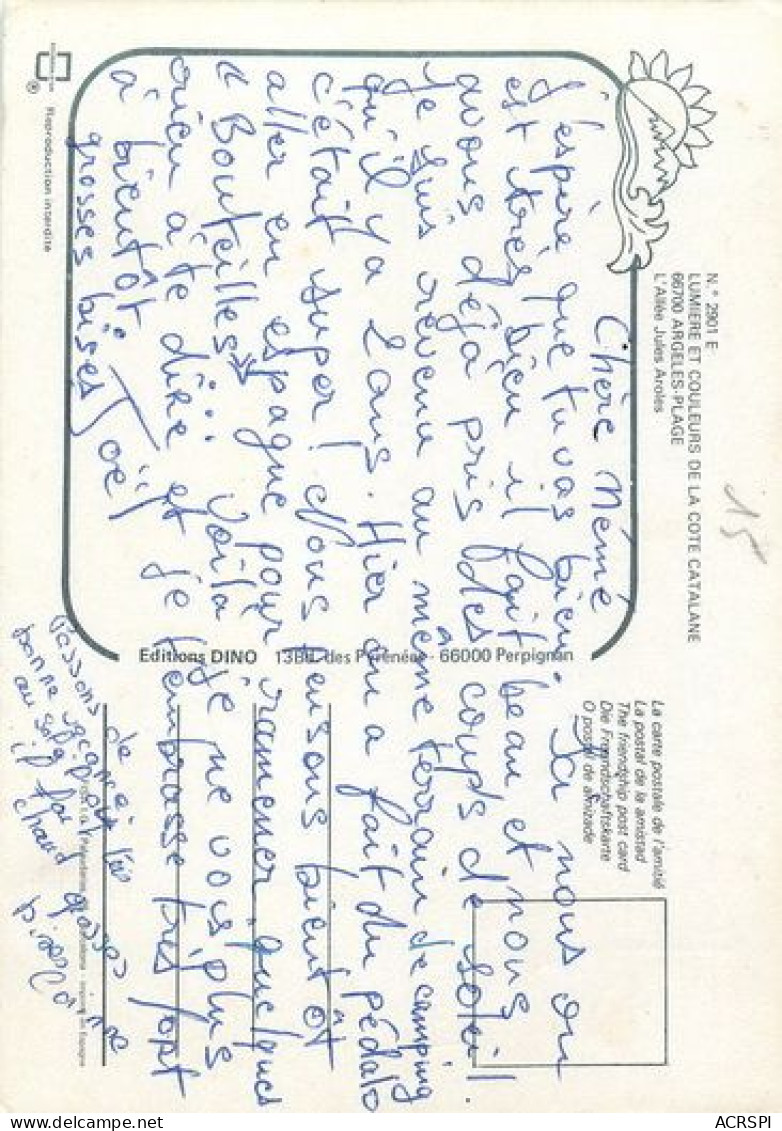 N.° 2901 E
LUMIERE ET COULEURS DE LA COTE CATALANE
66700 ARGELES-PLAGE
L'Allée Jules Aroles
15
La carte postale de l'amitié
La postal de la amistad
The friendship post card
Die Freundschaftskarte
O postal de amizade
Chère Mémé
J'espère que tu vas bien. Ici nous on
est très bien il fait beau et nous
avons déjà pris des coups de soleil.
Je suis revenu au même terrain de camping
qu'il y a 2 ans. Hier on a fait du pédalo
c'était super! Nous pensons bientôt
aller en espagne pour ramener quelques
"Bouteilles"... Voilà je ne vois plus
rien à te dire et je t'embrasse très fort
à bientôt
grosses bises Joël
Passons de
bonne vacances
au soleil
il fai
chaud grosses
bises
Editions DINO 13Bd. des Pyrénées - 66000 Perpignan
® Reproduction interdite
ACRSPI